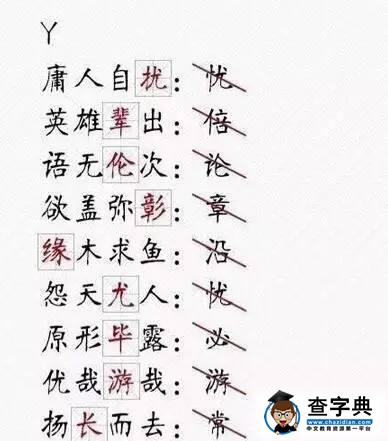 Y
庸人自扰：忧
英雄辈出：倍
语无伦次：论
欲盖弥彰：章
缘木求鱼：沿
怨天尤人：忧
原形毕露：必
优哉游哉：游
扬长而去：常
查字典
中文教育资源第一平台
www.chazidian.com